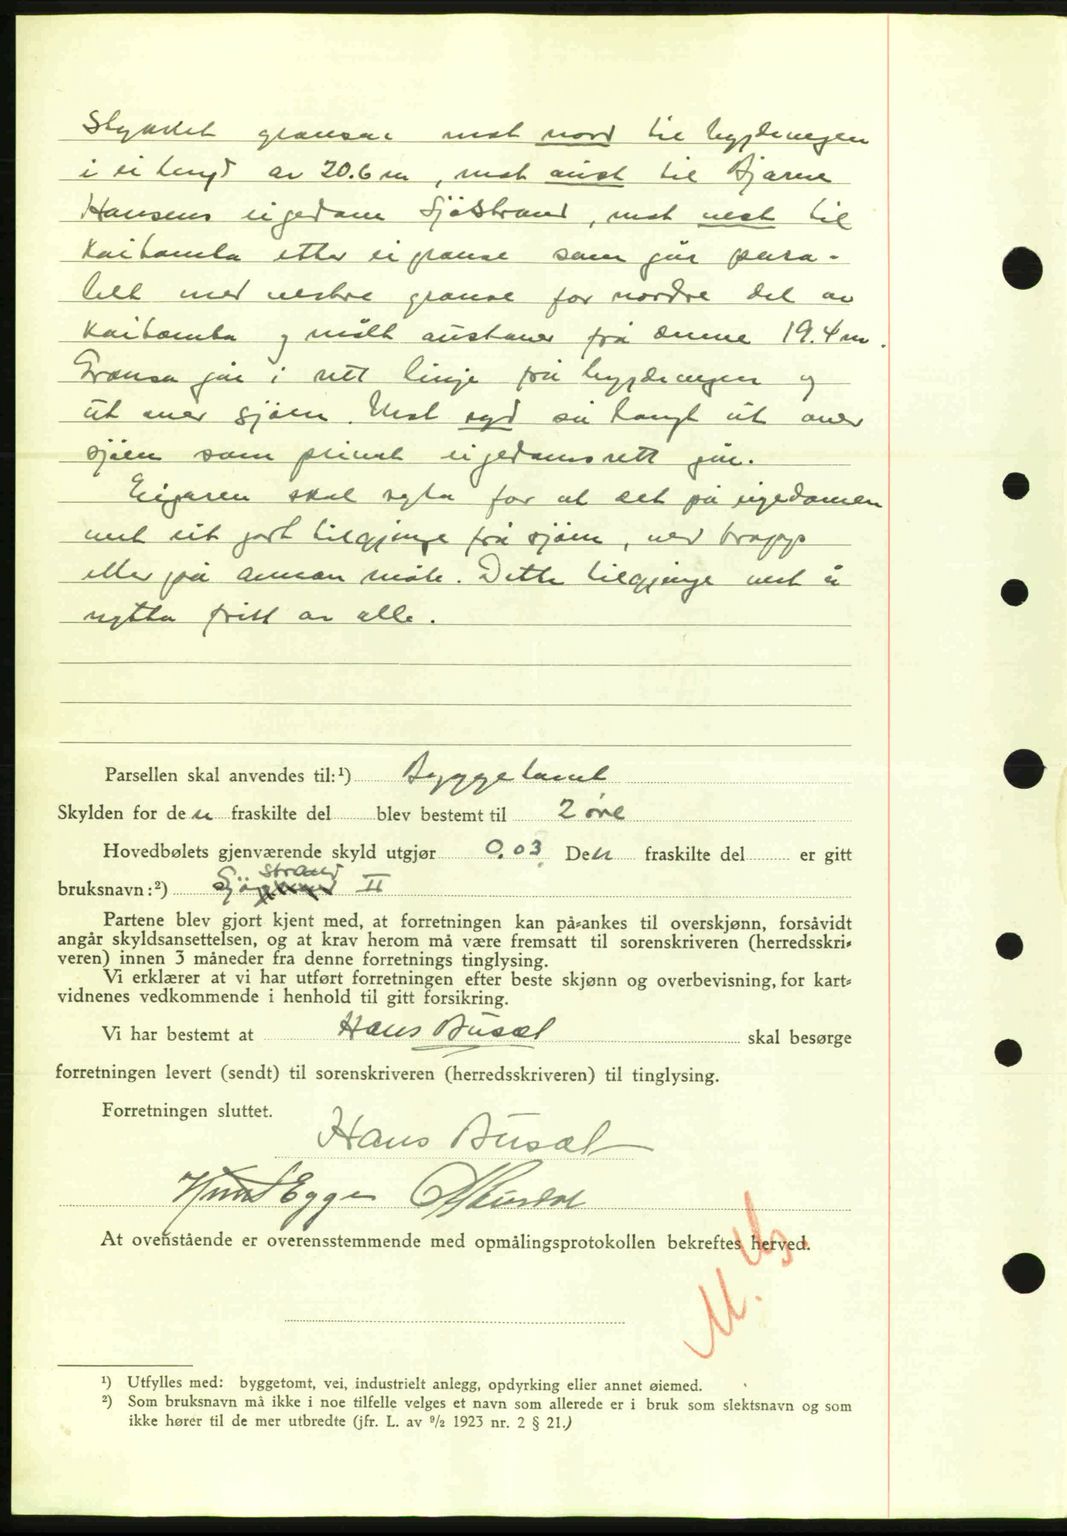 Stykket grensar mot nord til bygdevegen
i ei lengd av 20.6 m, mot aust til Bjarne
Hansens eigedom Sjöstrand, mot vest til
Kaitomta etter ei grense som går para-
lell med vestre grense for nordre del av
Kaitomta og målt austover frå denne 19.4 m.
Grensa går i rett linje frå bygdevegen og
ut over sjöen. Mot syd så langt ut over
sjöen som privat eigedomsrett går.
Eigaren skal syta for at det på eigedomen
vert eit godt tilgjenge frå sjöen, ved trapp
eller på annan måte. Dette tilgjenge vert å
nytta fritt av alle.
Parsellen skal anvendes til:¹) Byggetomt
Skylden for den fraskilte del blev bestemt til 2 øre
Hovedbølets gjenværende skyld utgjør 0.03 Den fraskilte del er gitt
strand
bruksnavn:²) Sjö II
Partene blev gjort kjent med, at forretningen kan på-ankes til overskjønn, forsåvidt
angår skyldsansettelsen, og at krav herom må være fremsatt til sorenskriveren (herredsskri-
veren) innen 3 måneder fra denne forretnings tinglysing.
Vi erklærer at vi har utført forretningen efter beste skjønn og overbevisning, for kart-
vidnenes vedkommende i henhold til gitt forsikring.
Vi har bestemt at Hans Busæt skal besørge
forretningen levert (sendt) til sorenskriveren (herredsskriveren) til tinglysing.
Forretningen sluttet.
Hans Busæt
Knut Eggen
At ovenstående er overensstemmende med opmålingsprotokollen bekreftes herved.
¹) Utfylles med: byggetomt, vei, industrielt anlegg, opdyrking eller annet øiemed.
²) Som bruksnavn må ikke i noe tilfelle velges et navn som allerede er i bruk som slektsnavn og som
ikke hører til de mer utbredte (jfr. L. av ⁹/₂ 1923 nr. 2 § 21.)